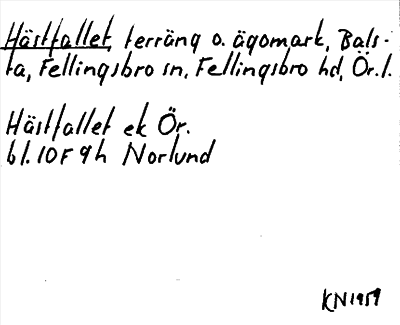 Hästfallet, terräng o. ägomark, Bals-
ta, Fellingsbro sn, Fellingsbro hd, Ör. l.
Hästfallet ek Ör.
bl. 10F 9h Norlund
KN 1959